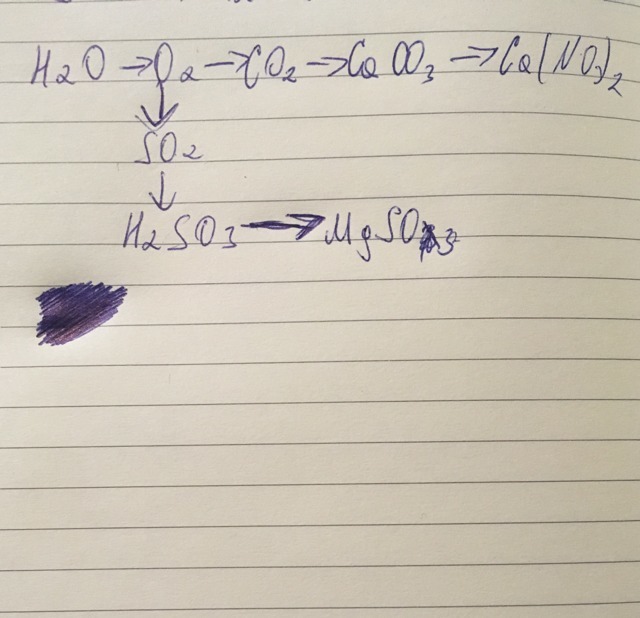 H2O → O2 → CO2 → CaCO3 → Ca(NO3)2
↓
SO2
↓
H2SO3 → MgSO3